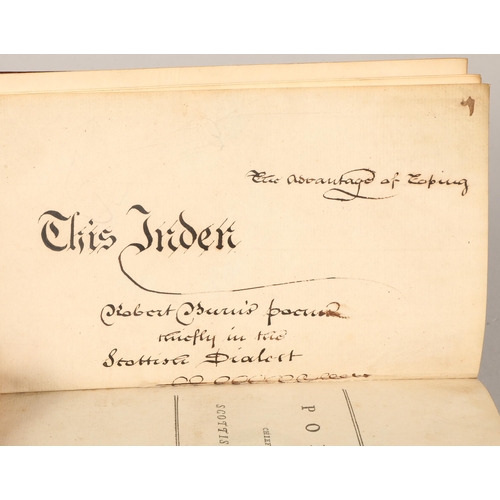 The Advantage of Toping
This Inden
Robert Burn's poems
chiefly in the
Scottish Dialect
PO
CHIE
SCOTTIS